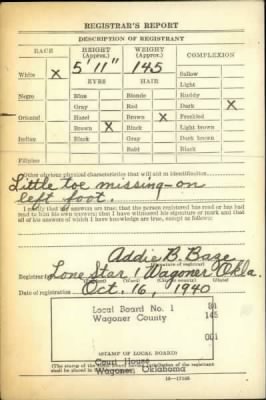 REGISTRAR'S REPORT
DESCRIPTION OF REGISTRANT
RACE HEIGHT (Approx.) WEIGHT (Approx.) COMPLEXION
5' 11" 145
White X Sallow
EYES HAIR Light
Negro Blue Blonde Ruddy
Gray Red Dark X
Oriental Hazel Brown X Freckled
Brown X Black Light brown
Indian Black Gray Dark brown
Bald Black
Filipino
Other obvious physical characteristics that will aid in identification
Little toe missing on
left foot.
I certify that my answers are true; that the person registered has read or has had
read to him his own answers; that I have witnessed his signature or mark and that
all of his answers of which I have knowledge are true, except as follows:
Addie B. Baze
(Signature of registrar)
Registrar for Lone Star 1 Wagoner Okla.
Date of registration Oct. 16, 1940
Local Board No. 1
Wagoner County 145
001
(STAMP OF LOCAL BOARD)
Court House
(The stamp of the Local Board having jurisdiction of the registrant
shall be placed in
Wagoner, Oklahoma